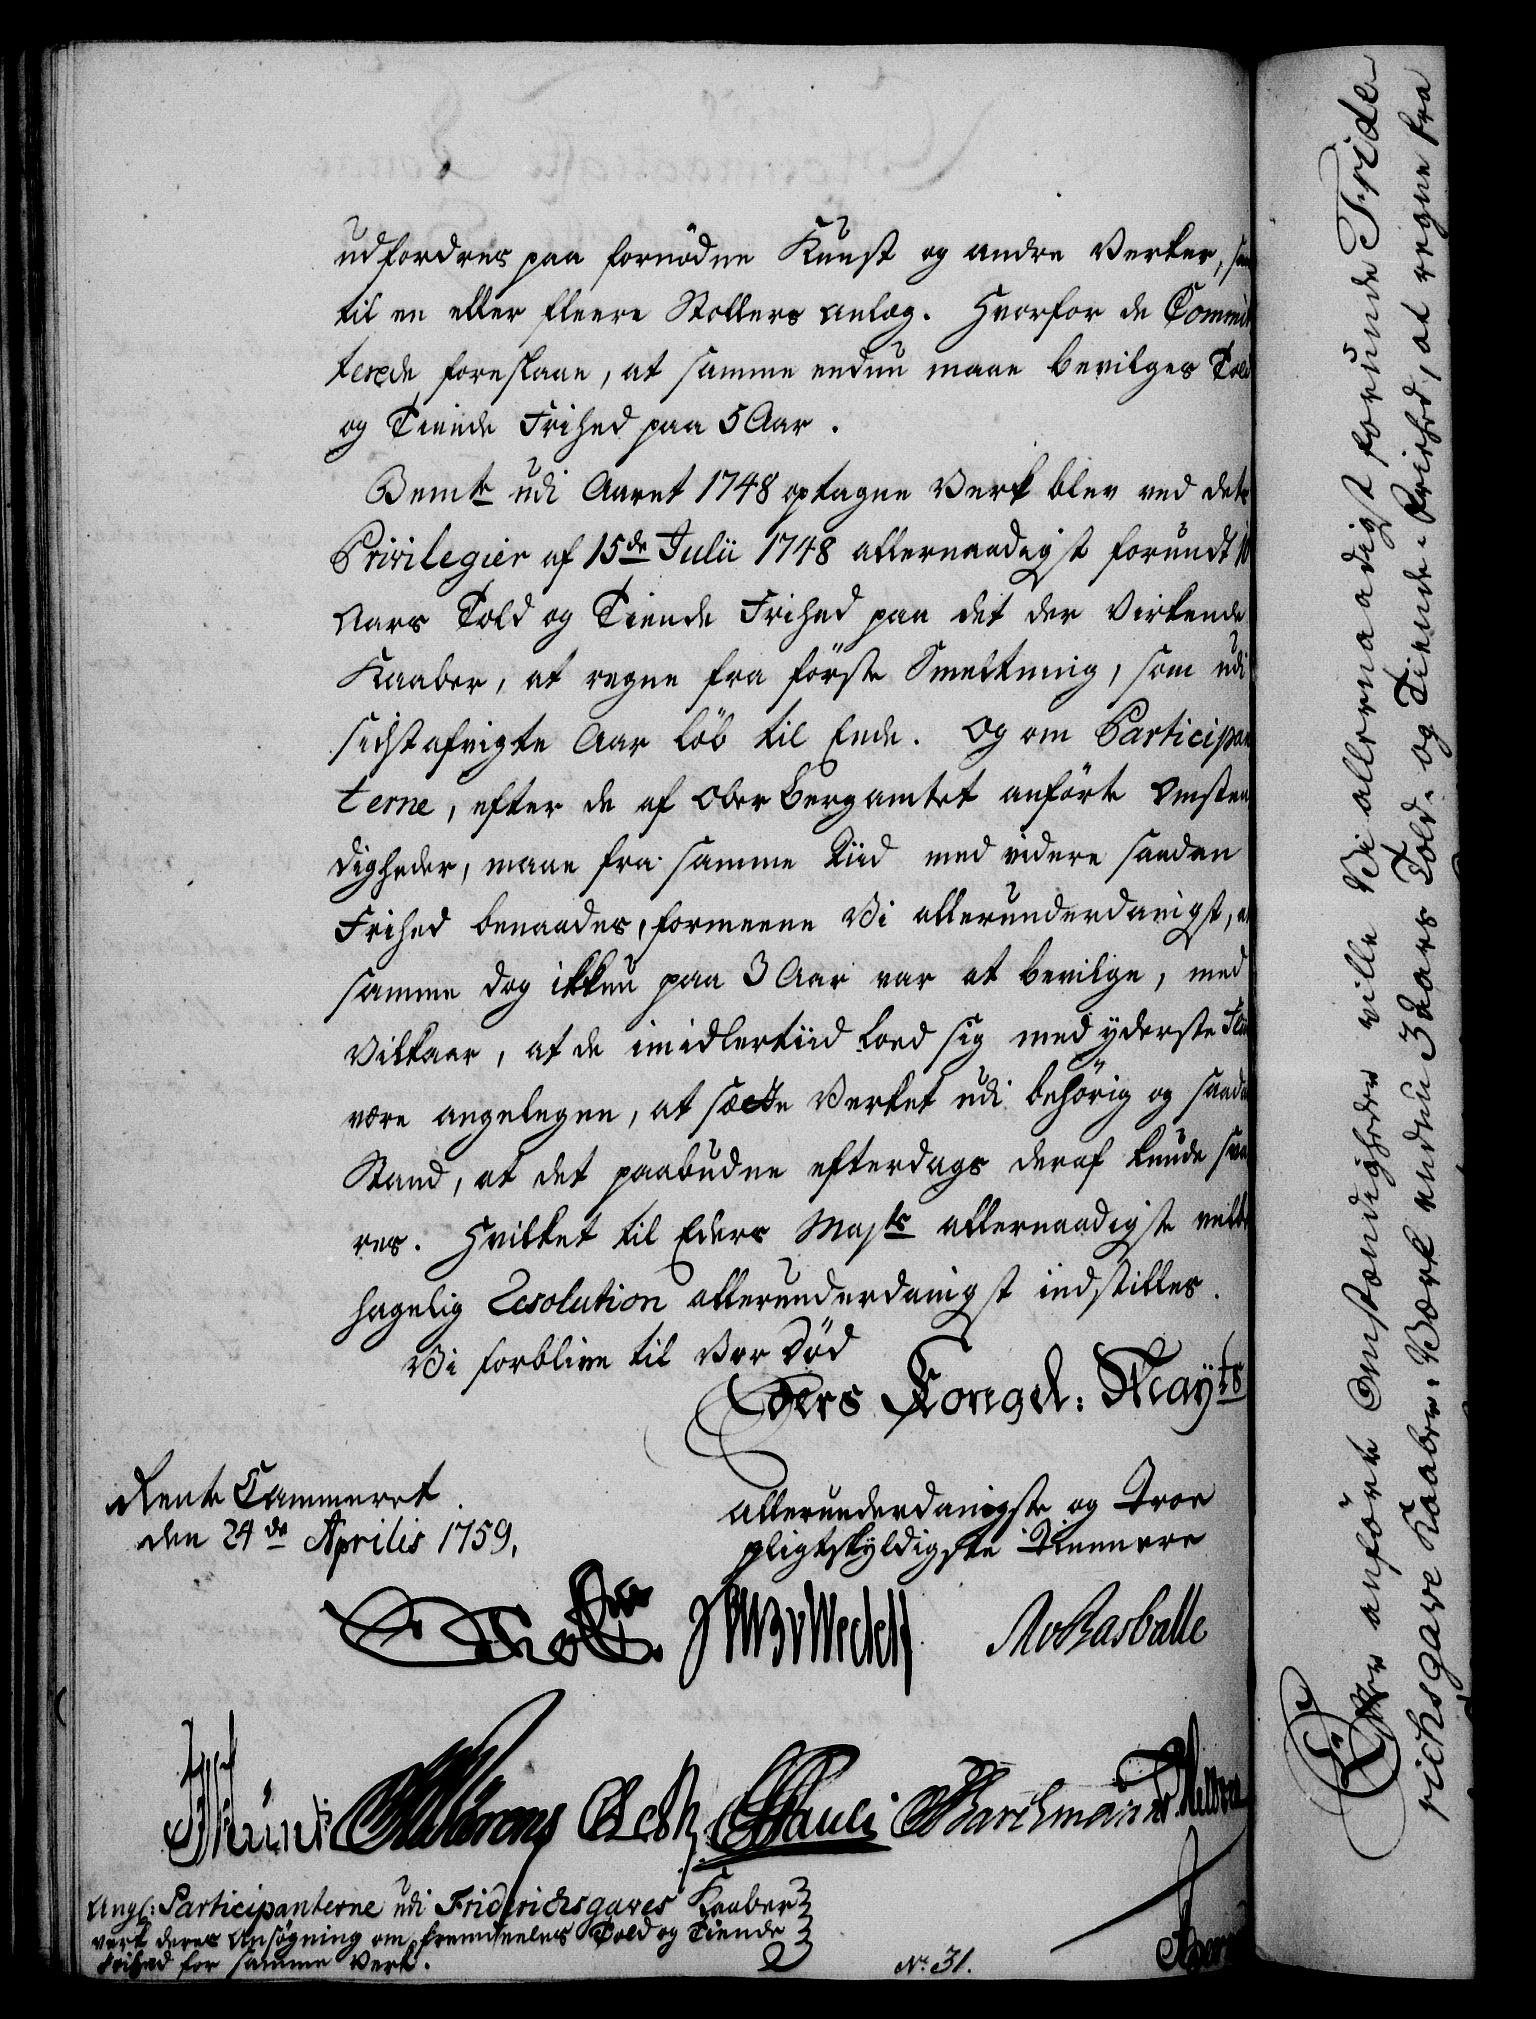 udfordres paa fornødne Kunst og andre Verker, saa
til en eller fleere Stollers anlæg. Hvorfor de Commit
terede foreslaae, at samme endnu maae bevilges Told
og Tiende Frihed paa 5 Aar.
Bemte udi Aaret 1748 optagne Verk blev ved dets
Privilegier af 15de Julii 1748 allernaadigst forundt 10
Aars Told og Tiende Frihed paa det der virkende
Kaaber, at regne fra første Smeltning, som udi
sidstafvigte Aar løb til Ende. Og om Participan
terne, efter de af Ober Bergamtet anførte Omstæn
digheder, maae fra samme Tiid med videre saadan
Frihed benaades, formeene Vi allerunderdanigst, at
samme dog ikkun paa 3 Aar var at bevilge, med
Vilkaar, at de imidlertiid lod sig med yderste Fliid
være angelegen, at sætte Verket udi behørig og saadan
Stand, at det paabudne efterdags deraf kunde sva
res. Hvilket til Eders Majts allernaadigste velbe
hagelig Resolution allerunderdanigst indstilles.
Vi forblive til Vor Död
Eders Kongel: Mayts
Rente Cammeret
den 24de Aprilis 1759.
allerunderdanigste og Troe
pligtskyldigste Tienere
Holstein JWBvWedell MvRasballe
Pauli Barchmann
Angl: Participanterne udi Friderichsgaves Kaaber
verk deres Ansøgning om fremdeeles Told og Tiende
Frihed for samme Verk.
No. 31.
Efter anførte Omstændigheder ville Vi allernaadigst forunde Fride
richsgave Kaaber-Værk endnu 3 Aars Told- og Tiende-Friehed, at regne fra